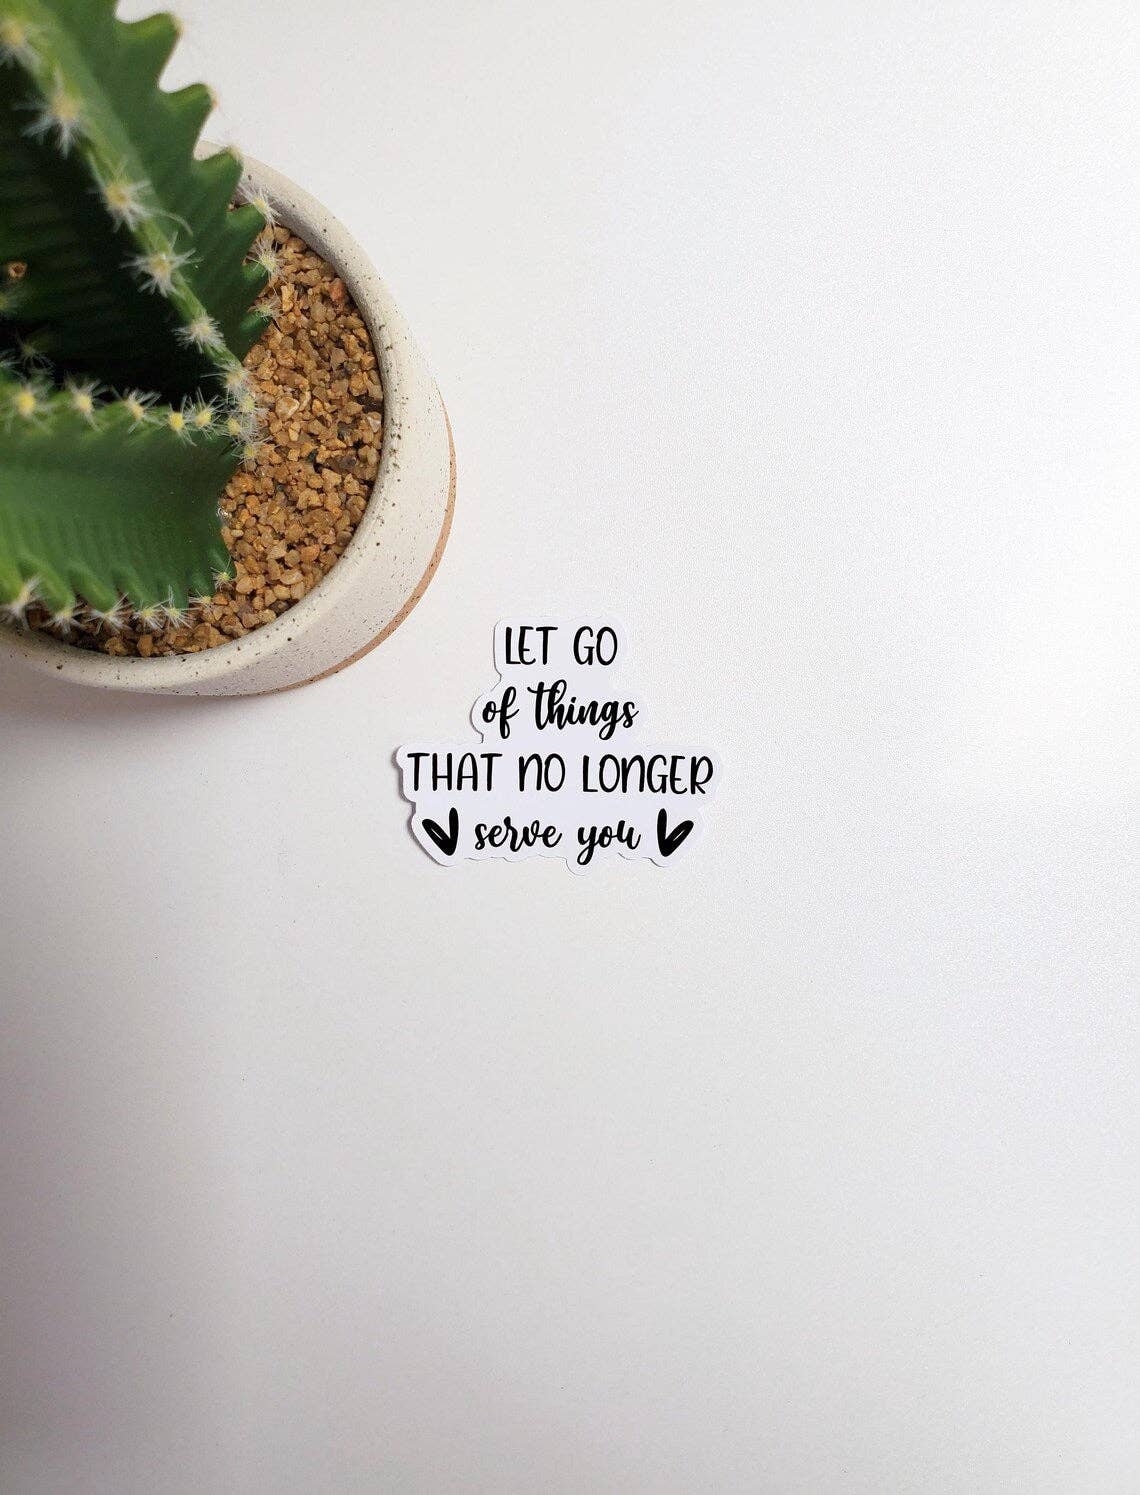 LET GO
of things
THAT NO LONGER
serve you